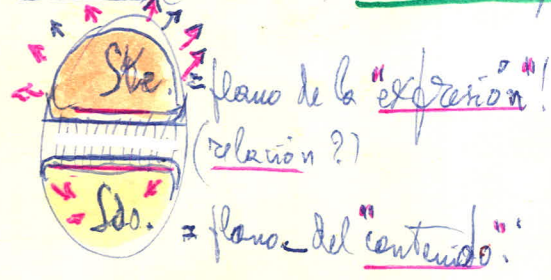 Ste. = plano de la "expresión"!
(relación?)
Sdo. = plano del "contenido".